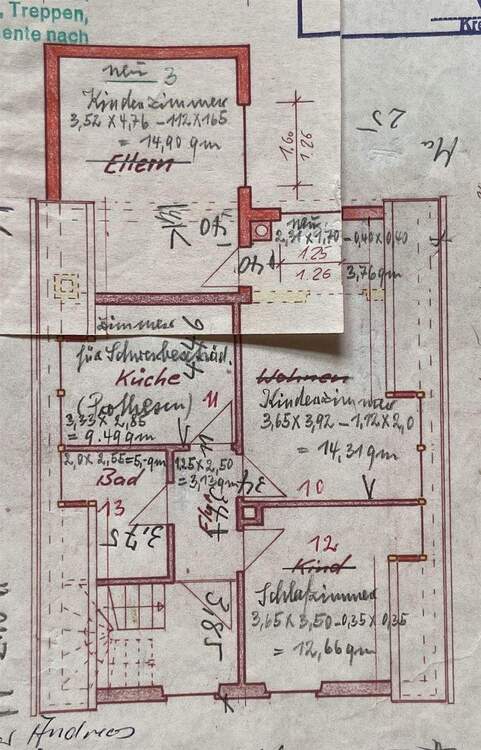 , Treppen,
ente nach
Kre
neu 3
Kinderzimmer
3,52 x 4,76 - 1,12 x 1,65
= 14,90 qm
Eltern
1.60
1.26
Ma
25
neu:
2,31 x 1,70 - 0,40 x 0,40
1.25
1.26
3,76 qm
Zimmer
für Schwerbeschäd.
Küche
(Prothesen)
11
3,33 x 2,85
= 9.49 qm
Wohnen
Kinderzimmer
3,65 x 3,92 - 1,12 x 2,0
= 14,31 qm
10
2,0 x 2,55 = 5,- qm
Bad
13
3,75
1,25 x 2,50
= 3,13 qm
Flur
12
Kind
Schlafzimmer
3,65 x 3,50 - 0,35 x 0,35
= 12,66 qm
3,85
Andreas